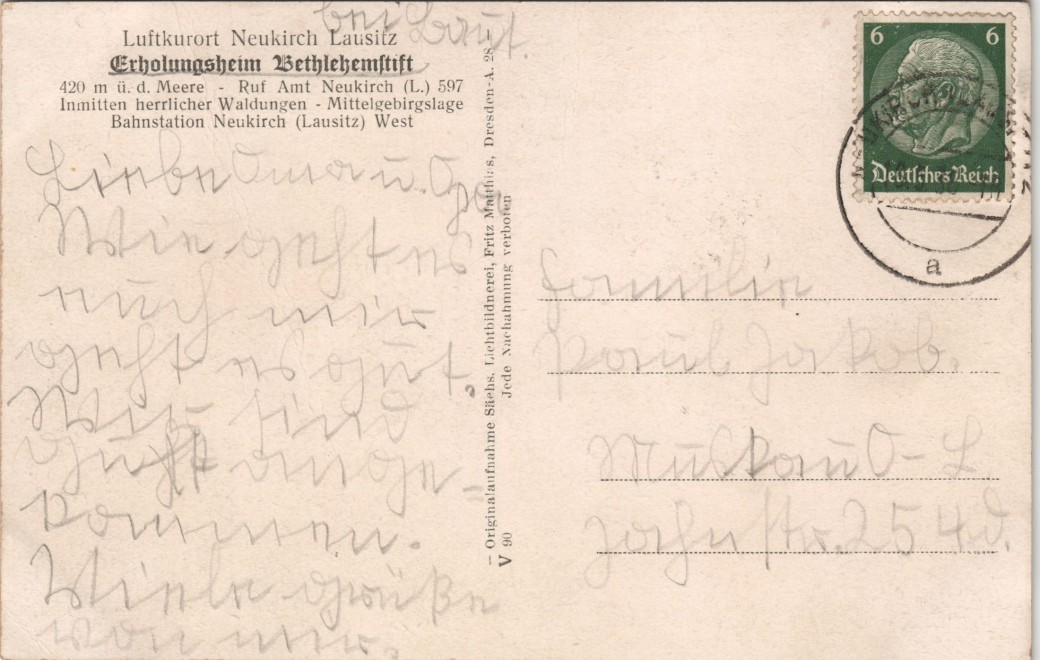 bei Baut.
Luftkurort Neukirch Lausitz
Erholungsheim Bethlehemstift
420 m ü. d. Meere - Ruf Amt Neukirch (L.) 597
Inmitten herrlicher Waldungen - Mittelgebirgslage
Bahnstation Neukirch (Lausitz) West
Liebe Oma u. Opa
Wie geht es
euch mir
geht es gut.
Wir sind
gut ange-
kommen.
Viele Grüße
von mir.
— Originalaufnahme Sächs. Lichtbildnerei, Fritz Matthias, Dresden-A. 28 —
Jede Nachahmung verboten
V 90
6 6
Deutsches Reich
a
Familie
Paul Jakob.
Muskau O-L
Jahnstr. 254d.